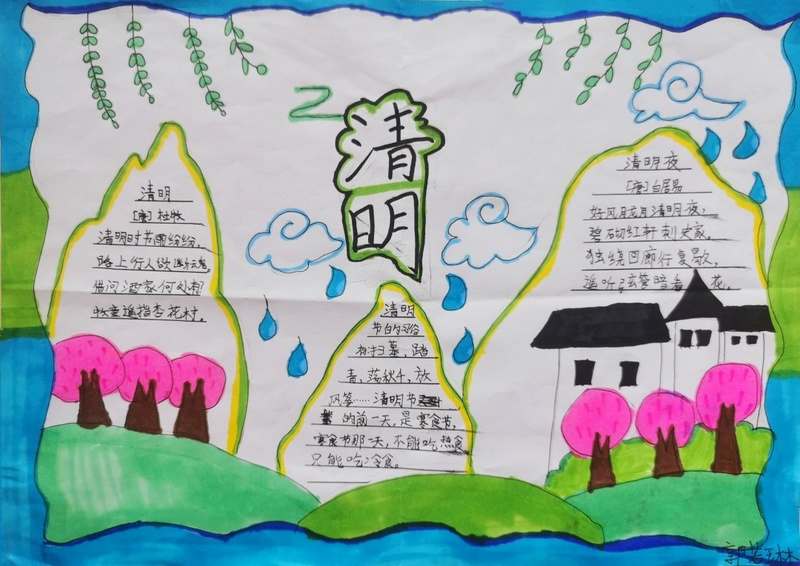 清明
清明
[唐]杜牧
清明时节雨纷纷，
路上行人欲断魂。
借问酒家何处有
牧童遥指杏花村。
清明
节的习俗
有扫墓，踏
青，荡秋千，放
风筝……清明节
的前一天，是寒食节，
寒食节那一天，不能吃热食
只能吃冷食。
清明夜
[唐]白居易
好风胧月清明夜，
碧砌红轩刺史家。
独绕回廊行复歇，
遥听弦管暗看花。
郭若琳